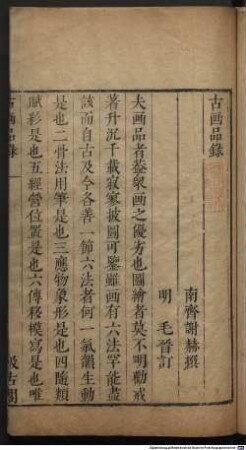 古画品錄
南齊謝赫撰
明 毛晉訂
夫画品者葢衆画之優劣也圖繪者莫不明勸戒
著升沉千載寂寥披圖可鑒雖画有六法罕能盡
該而自古及今各善一節六法者何一氣韻生動
是也二骨法用筆是也三應物象形是也四隨類
賦彩是也五經營位置是也六傳移模寫是也唯
古画品錄
一
汲古閣